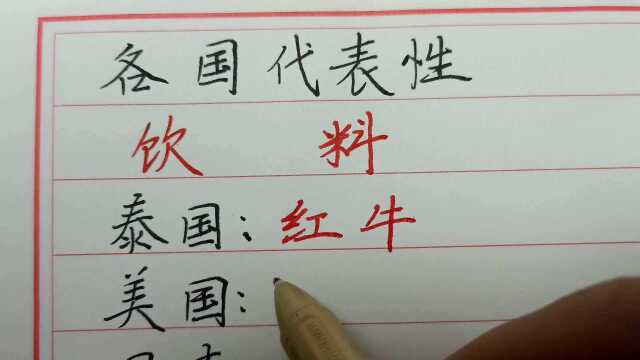 各国代表性
饮 料
泰国：红牛
美国：